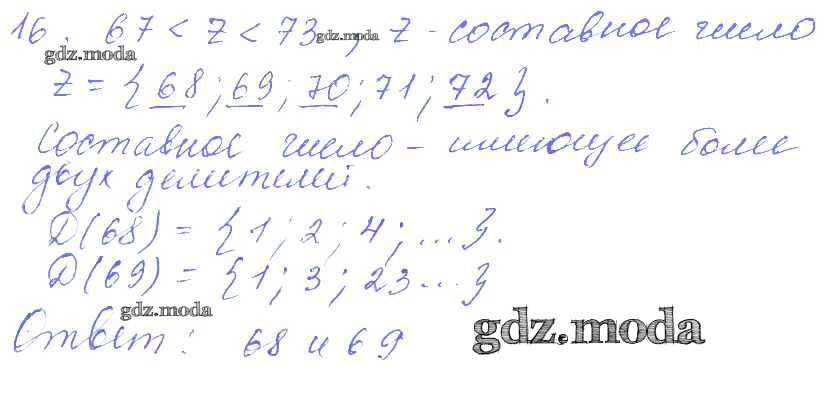 16. 67 < z < 73, z - составное число
gdz.moda
gdz.moda
z = { 68; 69; 70; 71; 72 }.
Составное число - имеющее более
двух делителей.
D(68) = {1; 2; 4; ...}.
D(69) = {1; 3; 23...}
gdz.moda
Ответ: 68 и 69
gdz.moda